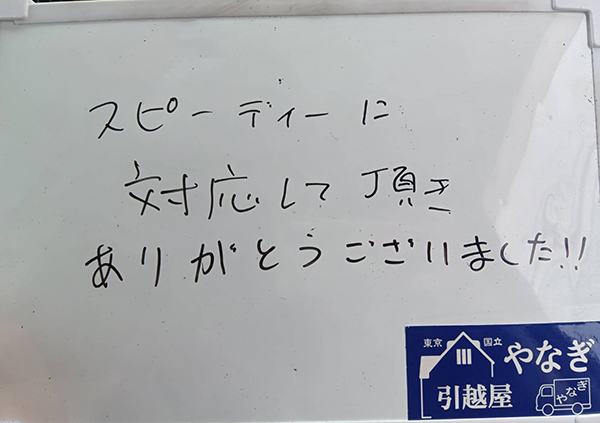 スピーディーに
対応して頂き
ありがとうございました!!
東京 国立 やなぎ
引越屋 やなぎ